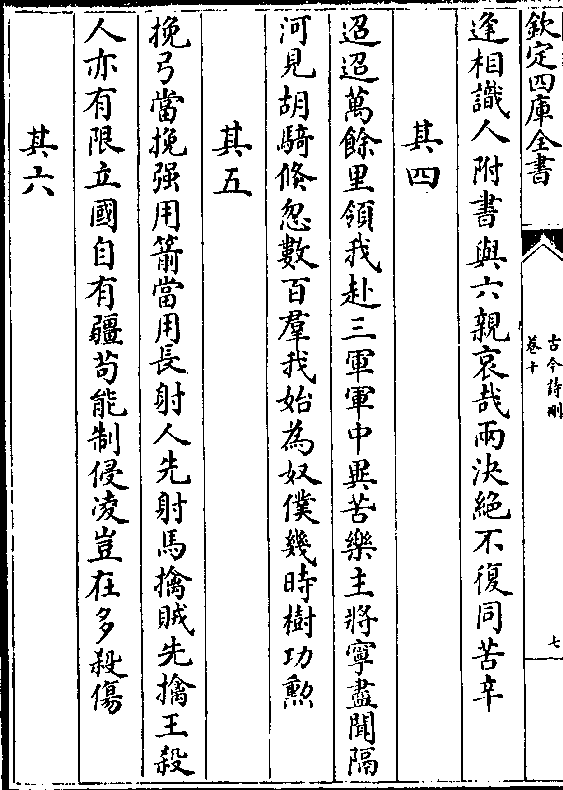 欽定四庫全書
古今詩刪
卷十
七
逢相識人附書與六親哀哉兩決絶不復同苦辛
其四
迢迢萬餘里領我赴三軍軍中異苦樂主將寧盡聞隔
河見胡騎倏忽數百羣我始為奴僕幾時樹功勲
其五
挽弓當挽强用箭當用長射人先射馬擒賊先擒王殺
人亦有限立國自有疆苟能制侵凌豈在多殺傷
其六